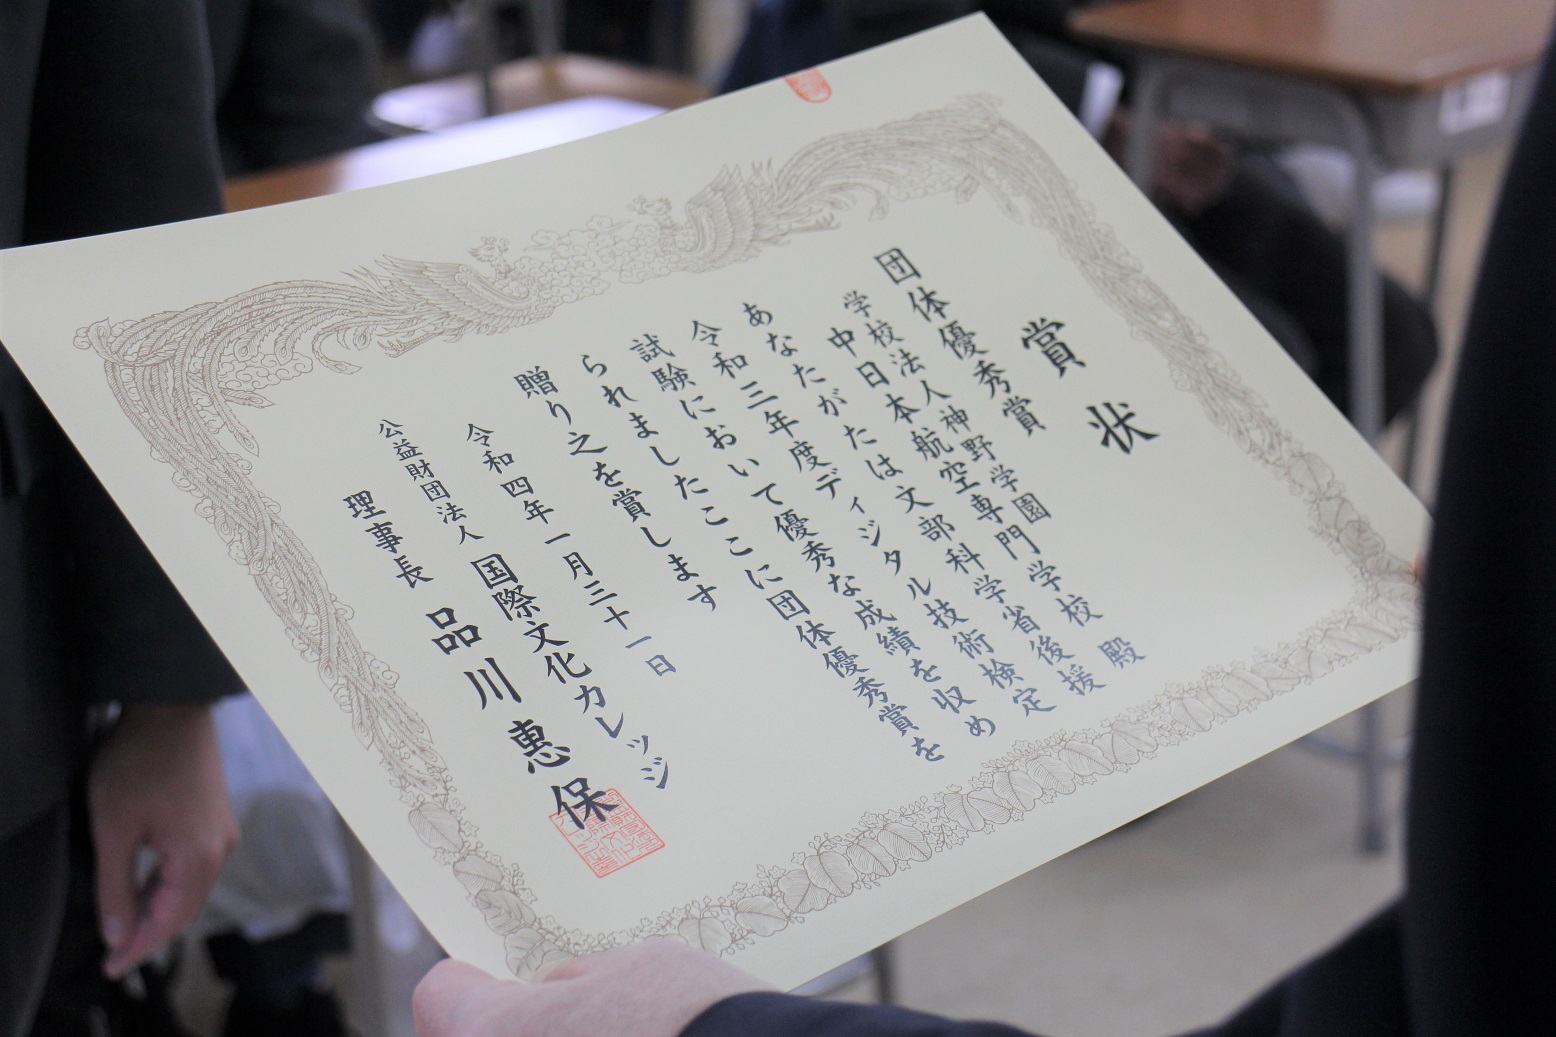 賞状
団体優秀賞
学校法人神野学園
中日本航空専門学校 殿
あなたがたは文部科学省後援
令和三年度ディジタル技術検定
試験において優秀な成績を収め
られましたここに団体優秀賞を
贈り之を賞します
令和四年一月三十一日
公益財団法人 国際文化カレッジ
理事長 品川惠保